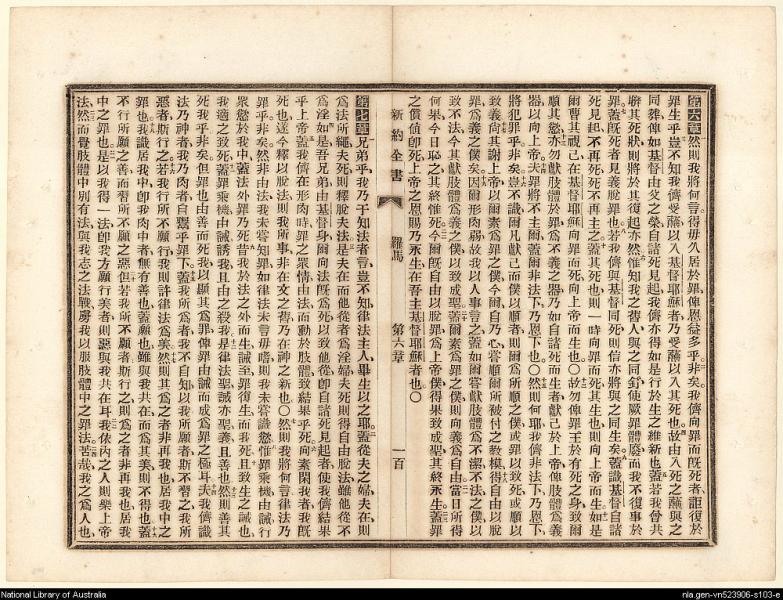 第六章 然則我將何言得毋久居於罪俾恩益多乎非矣我儕向罪而旣死者詎復於
罪生乎豈不知我儕受蘸以入基督耶穌者乃受蘸以入其死也故由入死之蘸與之
同葬俾如基督由父之榮自諸死見起我儕亦得如是行於生之維新也蓋若我曾共
聯其死狀則將於其復起亦然惟知我之舊人與之同釘使厥罪體廢而我不復事於
罪蓋旣死者見義脫罪也若我儕與基督同死則信亦將與之同生矣蓋識基督自諸
死見起不再死死不再主之蓋其死也則一時向罪而死其生也則向上帝而生如是
爾曹其視己在基督耶穌向罪而死向上帝而生也〇故勿俾罪王於有死之身致爾
順其慾亦勿獻肢體於罪爲不義之器乃如自諸死而生者獻己於上帝俾肢體爲義
器以向上帝夫罪將不主爾蓋爾非法下乃恩下也〇然則何耶我儕非法下乃恩下
將犯罪乎非矣豈不識爾凡獻己而僕以順者則爾爲所順之僕或罪以致死或順以
致義尙其謝上帝以爾素爲罪之僕今爾自乃心嘗順爾所被付之教模得自由以脫
罪爲義之僕矣因爾形肉弱故我以人事言之蓋如爾嘗獻肢體爲不潔不法之僕以
致不法今其獻肢體爲義之僕以致成聖蓋爾素爲罪之僕則向義爲自由當日所得
何果今日恥之其終惟死今爾旣自由以脫罪爲上帝僕得果致成聖其終永生蓋罪
之價値卽死上帝之恩賜乃永生在吾主基督耶穌者也〇
新約全書 羅馬 第六章 一百
第七章 兄弟乎我乃于知法者言豈不知律法主人畢生以之耶蓋從夫之婦夫在則
爲法所繩夫死則釋脫夫法是夫在而他從者爲淫婦夫死則得自由脫法雖他從不
爲淫如是吾兄弟由基督身爾向法旣爲死以致他從卽自諸死見起者使我儕結果
乎上帝蓋我儕在形肉時罪之衆情由法而動於肢體致結果乎死向素閑我者我旣
死也迄今釋以脫法則我所事非在文之舊乃在神之新也〇然則我將何言律法乃
罪乎非矣然非由法我未嘗知罪如律法未言毋嗜則我未嘗識慾惟罪乘機由誡行
衆慾於我中蓋法外罪乃死昔我於法之外而生誡至罪復生而我死且致生之誡也
我適之致死蓋罪乘機由誡誘我且由之殺我是律法聖誡亦聖義且善也然則善其
死我乎非矣但罪也由善而死我以顯其爲罪俾罪由誡而成爲罪之極耳夫我儕識
法乃神者我乃肉者自鬻乎罪下蓋我所爲者我不自知以我所願者斯不習之我所
惡者斯行之若我行所不願行我則許律法爲美然則其爲之者非再我也居我中之
罪也我識居我中卽我肉中者無有善也蓋願也雖與我共在而爲其美則不得也蓋
不行所願之善而習所不願之惡但若我所不願者斯行之則爲之者非再我也居我
中之罪也是以我得一法卽我方願行美者則惡與我共在耳我依內之人則樂上帝
法然而覺肢體中別有法與我志之法戰虜我以服肢體中之罪法苦哉我之爲人也
National Library of Australia
nla.gen-vn523906-s103-e